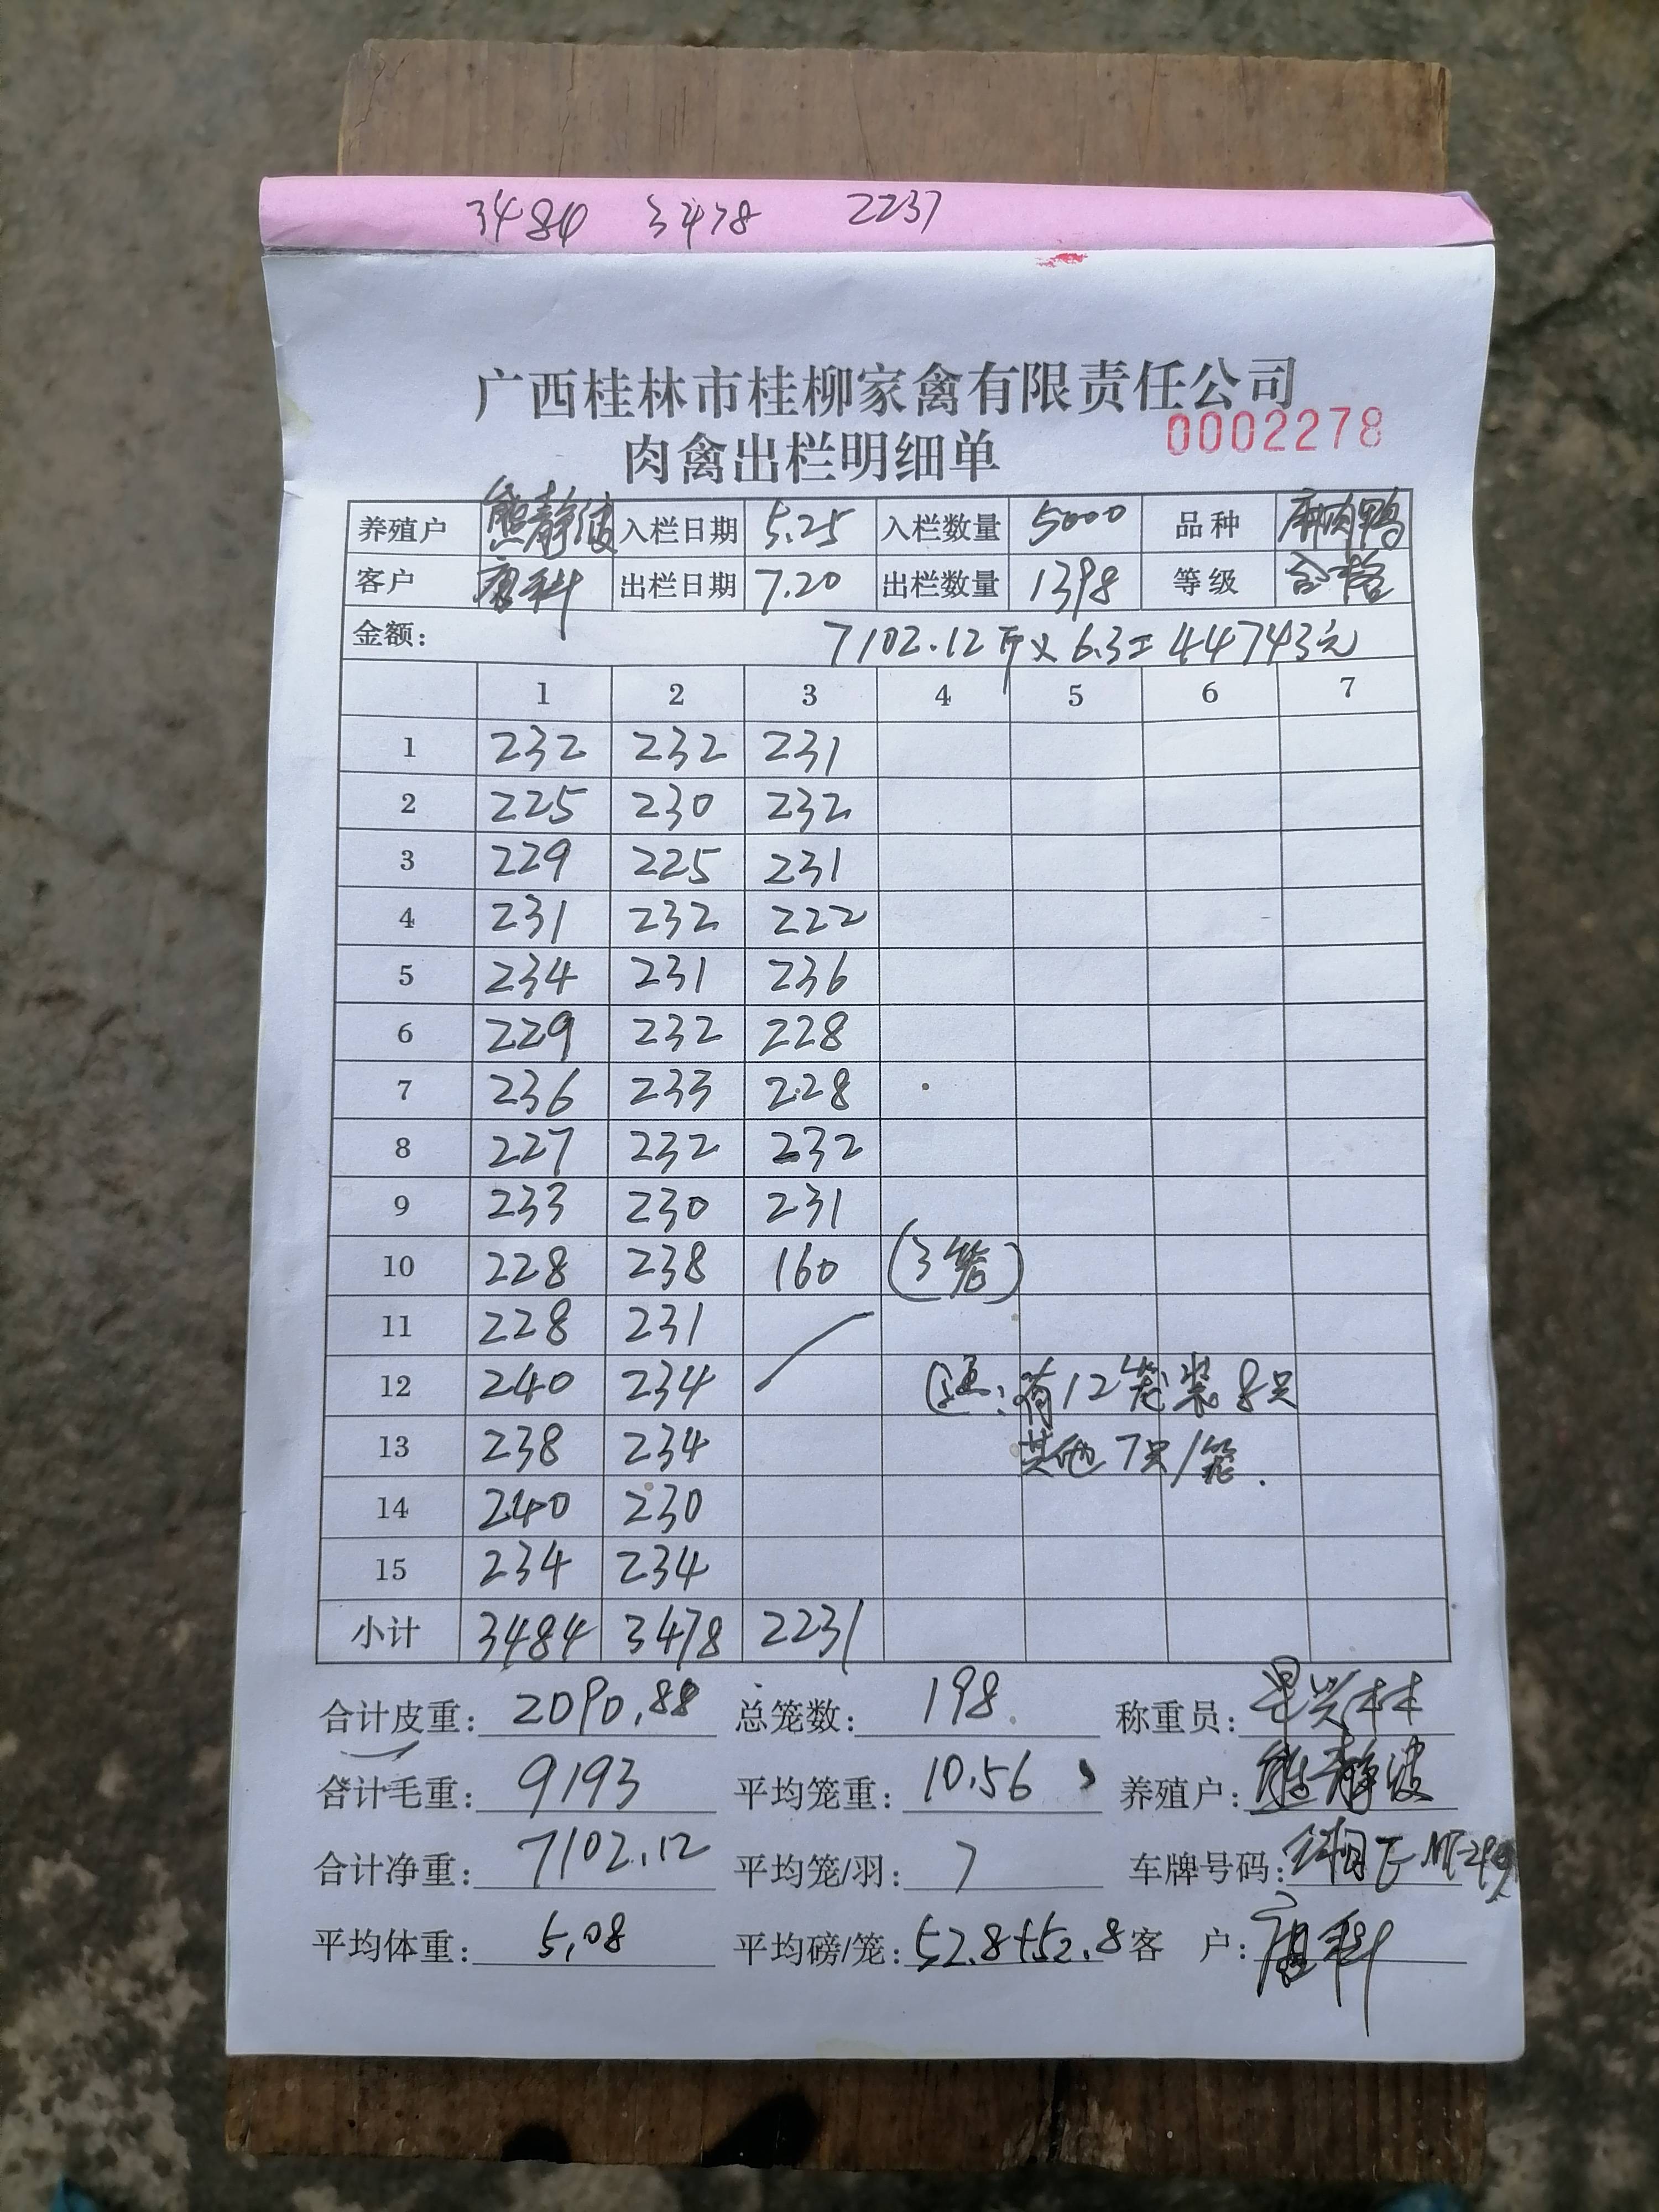 3484 3478 2237
广西桂林市桂柳家禽有限责任公司
0002278
肉禽出栏明细单
养殖户 熊静波 入栏日期 5.25 入栏数量 5000 品种 麻肉鸭
客户 唐科 出栏日期 7.20 出栏数量 1398 等级 合格
金额: 7102.12斤×6.3=44743元
1 2 3 4 5 6 7
1 232 232 231
2 225 230 232
3 229 225 231
4 231 232 222
5 234 231 236
6 229 232 228
7 236 233 228
8 227 232 232
9 233 230 231
10 228 238 160 (3笼)
11 228 231
12 240 234 注:有12笼装8只
13 238 234 其他7只/笼.
14 240 230
15 234 234
小计 3484 3478 2231
合计皮重: 2090.88 总笼数: 198 称重员:
合计毛重: 9193 平均笼重: 10.56 养殖户: 熊静波
合计净重: 7102.12 平均笼/羽: 7 车牌号码:
平均体重: 5.08 平均磅/笼: 52.8+52.8 客 户: 唐科